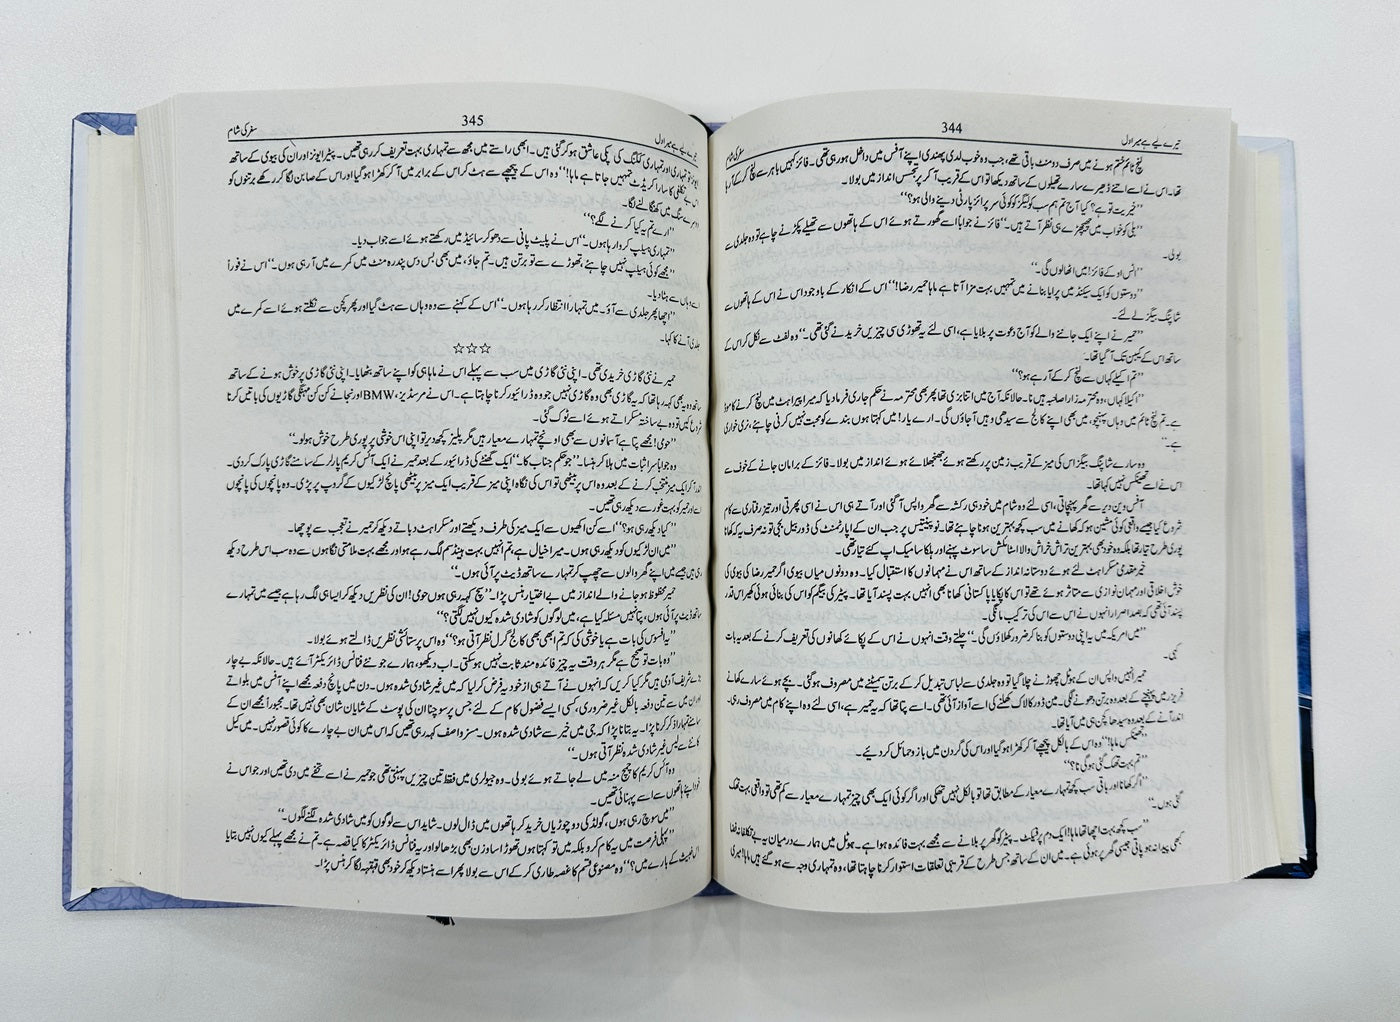 344
تیرے لیے ہے میرا دل
سفر کی شام
لنچ ٹائم ختم ہونے میں صرف دو منٹ باقی تھے، جب وہ خوب لدی پھندی اپنے آفس میں داخل ہو رہی تھی۔ فائز کہیں باہر سے لنچ کر کے آ رہا
تھا۔ اس نے اسے اتنے ڈھیر سارے تھیلوں کے ساتھ دیکھا تو اس کے قریب آ کر پر تجسس انداز میں بولا۔
”خیریت تو ہے؟ کیا آج تم ہم سب کولیگز کو کوئی سرپرائز پارٹی دینے والی ہو؟“
”بلی کو خواب میں چھچھڑے ہی نظر آتے ہیں۔“ فائز نے جواباً اسے گھورتے ہوئے اس کے ہاتھوں سے تھیلے پکڑنے چاہے تو وہ جلدی سے
بولی۔
”انس او کے فائز! میں اٹھا لوں گی۔“
”دوستوں کو ایک سیکنڈ میں پرایا بنانے میں تمہیں بہت مزا آتا ہے ماہا حمیر رضا!“ اس کے انکار کے باوجود اس نے اس کے ہاتھوں سے
شاپنگ بیگز لے لئے۔
”حمیر نے اپنے ایک جاننے والے کو آج دعوت پر بلایا ہے، اسی لئے یہ تھوڑی سی چیزیں خریدنے گئی تھی۔“ وہ لفٹ سے نکل کر اس کے
ساتھ اس کے کیبن تک آ گیا تھا۔
”تم اکیلے کہاں سے لنچ کر کے آ رہے ہو؟“
”اکیلا کہاں، وہ محترمہ زارا صاحبہ ہیں نا۔ حالانکہ آج میں اتنا بزی تھا پھر بھی محترمہ نے حکم جاری فرما دیا کہ میرا پیزا ہٹ میں لنچ کرنے کا موڈ
ہے۔ تم لنچ ٹائم میں وہاں پہنچو، میں بھی اپنے کالج سے سیدھی وہیں آ جاؤں گی۔ ارے یار! میں کہتا ہوں بندے کو محبت نہیں کرنی چاہئے، نری خواری
ہے۔“
وہ سارے شاپنگ بیگز اس کی میز کے قریب زمین پر رکھتے ہوئے جھنجھلائے ہوئے انداز میں بولا۔ فائز کے برا مان جانے کے خوف سے
اس نے اسے تھینکس نہیں کہا تھا۔
آفس وین دیر سے گھر پہنچاتی، اسی لئے وہ شام میں خود ہی رکشہ سے گھر واپس آ گئی اور آتے ہی اس نے اسی پھرتی اور تیز رفتاری سے کام
شروع کیا جیسے واقعی کوئی مشین ہو کر کھانے میں سب کچھ بہترین ہونا چاہئے تھا۔ نو پینتیس پر جب ان کے اپارٹمنٹ کی ڈور بیل بجی تو نہ صرف یہ کہ کھانا
پوری طرح تیار تھا بلکہ وہ خود بھی بہترین تراش خراش والا اسٹائلش سا سوٹ پہنے اور ہلکا سا میک اپ کئے تیار تھی۔
خیر مقدمی مسکراہٹ لئے ہوئے دوستانہ انداز کے ساتھ اس نے مہمانوں کا استقبال کیا۔ وہ دونوں میاں بیوی اگر حمیر رضا کی بیوی کی
خوش اخلاقی اور مہمان نوازی سے متاثر ہوئے تھے تو اس کا پکایا پاکستانی کھانا بھی انہیں بہت پسند آیا تھا۔ پیٹر کی بیگم کو اس کی بنائی ہوئی کھیر اس قدر
پسند آئی تھی کہ بعد اصرار انہوں نے اس سے اس کی ترکیب مانگی۔
”میں امریکہ میں یہ اپنی دوستوں کو بنا کر ضرور کھلاؤں گی۔“ چلتے وقت انہوں نے اس کے پکائے کھانوں کی تعریف کرنے کے بعد یہ بات
کہی۔
حمیر انہیں واپس ان کے ہوٹل چھوڑنے چلا گیا تو وہ جلدی سے لباس تبدیل کر کے برتن سمیٹنے میں مصروف ہو گئی۔ بچے ہوئے سارے کھانے
فریزر میں پہنچنے کے بعد وہ برتن دھونے لگی۔ مین ڈور کا لاک کھلنے کی اسے آواز آئی تھی۔ اسے پتا تھا کہ یہ حمیر ہے، اسی لئے وہ اپنے کام میں مصروف رہی۔
اندر آنے کے بعد وہ سیدھا کچن ہی میں آیا تھا۔
”تھینکس ماہا!“ وہ اس کے بالکل پیچھے آ کر کھڑا ہو گیا اور اس کی گردن میں بازو حمائل کر دیے۔
”تم بہت تھک گئی ہو گی نا؟“
”اگر کھانا اور باقی سب کچھ تمہارے معیار کے مطابق تھا تو بالکل نہیں تھکی اور اگر کوئی ایک بھی چیز تمہارے معیار سے کم تھی تو واقعی بہت تھک
گئی ہوں۔“
”سب کچھ بہت اچھا تھا ماہا! ایک دم پرفیکٹ۔ پیٹر کو گھر پر بلانے سے مجھے بہت فائدہ ہوا ہے۔ ہوٹل میں ہمارے درمیان یہ بے تکلفانہ فضا
کبھی پیدا نہ ہو پاتی جیسی گھر پر ہوئی ہے۔ میں ان کے ساتھ جس طرح کے قریبی تعلقات استوار کرنا چاہتا تھا، وہ تمہاری وجہ سے ہو گئے ہیں ماہا! میری
345
تیرے لیے ہے میرا دل
سفر کی شام
تو تمہاری اور تمہاری ککنگ کی پکی عاشق ہو گئی ہیں۔ ابھی راستے میں مجھ سے تمہاری بہت تعریف کر رہی تھیں۔ پیٹر ایونز اور ان کی بیوی کے ساتھ
اس بے تکلفی کا سارا کریڈٹ تمہیں جاتا ہے ماہا!“ وہ اس کے پیچھے سے ہٹ کر اس کے برابر میں آ کر کھڑا ہو گیا اور اس کے صابن لگا کر رکھے برتنوں کو
سنگ میں کھنگالنے لگا۔
”ارے تم یہ کیا کرنے لگے؟“
”تمہاری ہیلپ کروا رہا ہوں۔“ اس نے پلیٹ پانی سے دھو کر سائیڈ میں رکھتے ہوئے اسے جواب دیا۔
”مجھے کوئی ہیلپ نہیں چاہئے، تھوڑے سے تو برتن ہیں۔ تم جاؤ، میں بھی بس دس پندرہ منٹ میں کمرے میں آ رہی ہوں۔“ اس نے فوراً
اسے وہاں سے ہٹا دیا۔
”اچھا پھر جلدی سے آؤ۔ میں تمہارا انتظار کر رہا ہوں۔“ اس کے کہنے سے وہ وہاں سے ہٹ گیا اور پھر کچن سے نکلتے ہوئے اسے کمرے میں
جلدی آنے کا کہا۔
☆☆☆
حمیر نے نئی گاڑی خریدی تھی۔ اپنی نئی گاڑی میں سب سے پہلے اس نے ماہا ہی کو اپنے ساتھ بٹھایا۔ اپنی نئی گاڑی پر خوش ہونے کے ساتھ
ساتھ وہ یہ بھی کہہ رہا تھا کہ یہ گاڑی بھی وہ گاڑی نہیں جو وہ ڈرائیو کرنا چاہتا ہے۔ اس نے مرسڈیز، BMW اور نجانے کن کن مہنگی گاڑیوں کی باتیں کرنا
شروع کیں تو وہ بے ساختہ مسکراتے ہوئے اسے ٹوک گئی۔
”حومی! مجھے پتا ہے آسمانوں سے بھی اونچے تمہارے معیار ہیں مگر پلیز کچھ دیر تو اپنی اس خوشی پر پوری طرح خوش ہو لو۔“
وہ جواباً سر اثبات میں ہلا کر ہنسا۔ ”جو حکم جناب کا۔“ ایک گھنٹے کی ڈرائیو کے بعد حمیر نے ایک آئس کریم پارلر کے سامنے گاڑی پارک کر دی۔
اندر آ کر ایک میز منتخب کرنے کے بعد وہ اس پر بیٹھی تو اس کی نگاہ اپنی میز کے قریب ایک میز پر بیٹھی پانچ لڑکیوں کے گروپ پر پڑی۔ وہ پانچوں کی پانچوں
اسے اور حمیر کو بہت غور سے دیکھ رہی تھیں۔
”کیا دیکھ رہی ہو؟“ اسے کن انکھیوں سے ایک میز کی طرف دیکھتے اور مسکراہٹ دباتے دیکھ کر حمیر نے تعجب سے پوچھا۔
”میں ان لڑکیوں کو دیکھ رہی ہوں۔ میرا خیال ہے، تم انہیں بہت ہینڈسم لگ رہے ہو اور مجھے بہت ملامتی نگاہوں سے وہ سب اس طرح دیکھ
رہی ہیں جیسے میں اپنے گھر والوں سے چھپ کر تمہارے ساتھ ڈیٹ پر آئی ہوں۔“
حمیر محظوظ ہو جانے والے انداز میں بے اختیار ہنس پڑا۔ ”سچ کہہ رہی ہوں حومی! ان کی نظریں دیکھ کر ایسا ہی لگ رہا ہے جیسے میں تمہارے
ساتھ ڈیٹ پر آئی ہوں، پتا نہیں مسئلہ کیا ہے، میں لوگوں کو شادی شدہ کیوں نہیں لگتی؟“
”یہ افسوس کی بات ہے یا خوشی کی کہ تم ابھی بھی کالج گرل نظر آتی ہو؟“ وہ اس پر ستائشی نظریں ڈالتے ہوئے بولا۔
”وہ بات تو صحیح ہے مگر ہر وقت یہ چیز فائدہ مند ثابت نہیں ہو سکتی۔ اب دیکھو، ہمارے جو نئے فنانس ڈائریکٹر آئے ہیں۔ حالانکہ بے چارے
بڑے شریف آدمی ہیں مگر کیا کریں کہ انہوں نے آتے ہی از خود یہ فرض کر لیا کہ میں غیر شادی شدہ ہوں۔ دن میں پانچ دفعہ مجھے اپنے آفس میں بلواتے
اور ان میں سے تین دفعہ بالکل غیر ضروری، کسی ایسے فضول کام کے لئے جس پر سوچنا ان کی پوسٹ کے شایان شان بھی نہیں تھا۔ مجبوراً مجھے ان کے
سامنے تمہارا ذکر کرنا پڑا۔ یہ بتانا پڑا کہ جی میں خیر سے شادی شدہ ہوں۔ مسز واصف کہہ رہی تھیں کہ اس میں ان بے چارے کا کوئی قصور نہیں۔ میں کیل
کانٹے سے لیس غیر شادی شدہ نظر آتی ہوں۔“
وہ آئس کریم کا چمچ منہ میں لے جاتے ہوئے بولی۔ وہ جیولری میں فقط تین چیزیں پہنتی تھی جو حمیر نے اسے تحفے میں دی تھیں اور جو اس نے
خود اپنے ہاتھوں سے اسے پہنائی تھیں۔
”میں سوچ رہی ہوں، گولڈ کی دو چوڑیاں خرید کر ہاتھوں میں ڈال لوں۔ شاید اس سے لوگوں کو میں شادی شدہ لگنے لگوں۔“
”پہلی فرصت میں یہ کام کرو بلکہ میں تو کہتا ہوں تھوڑا سا وزن بھی بڑھا لو اور یہ فنانس ڈائریکٹر کا کیا قصہ ہے۔ تم نے مجھے پہلے کیوں نہیں بتایا
اس خبیث کے بارے میں؟“ وہ مصنوعی قسم کا غصہ طاری کر کے اس سے بولا پھر اسے ہنستا دیکھ کر خود بھی قہقہہ لگا کر ہنس پڑا۔